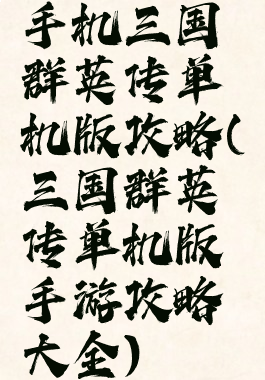 手机三国
群英传单
机版攻略(
三国群英
传单机版
手游攻略
大全)